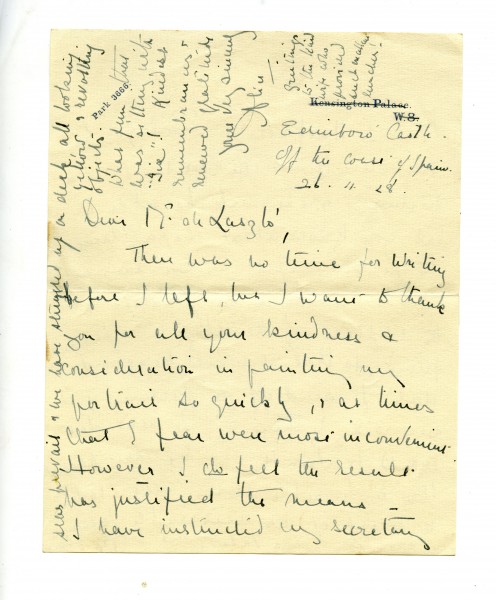 Park 3666.
Kensington Palace.
W.8.
Edinboro' Castle.
Off the coast of Spain.
26. 11. 28.
Dear Mr de Laszlo',
There was no time for writing
before I left, but I want to thank
you for all your kindness &
consideration in painting my
portrait so quickly, & at times
that I fear were most inconvenient.
However I do feel the result
has justified the means –
I have instructed my secretary
seas prevail & we have struggled up on deck all looking
yellow & revolting
objects.
What fun that
was sitting with
Kindest
remembrances &
renewed gratitude
yours very sincerely
Alice
Greetings
to the kind
wife who
provided
such
lunches!